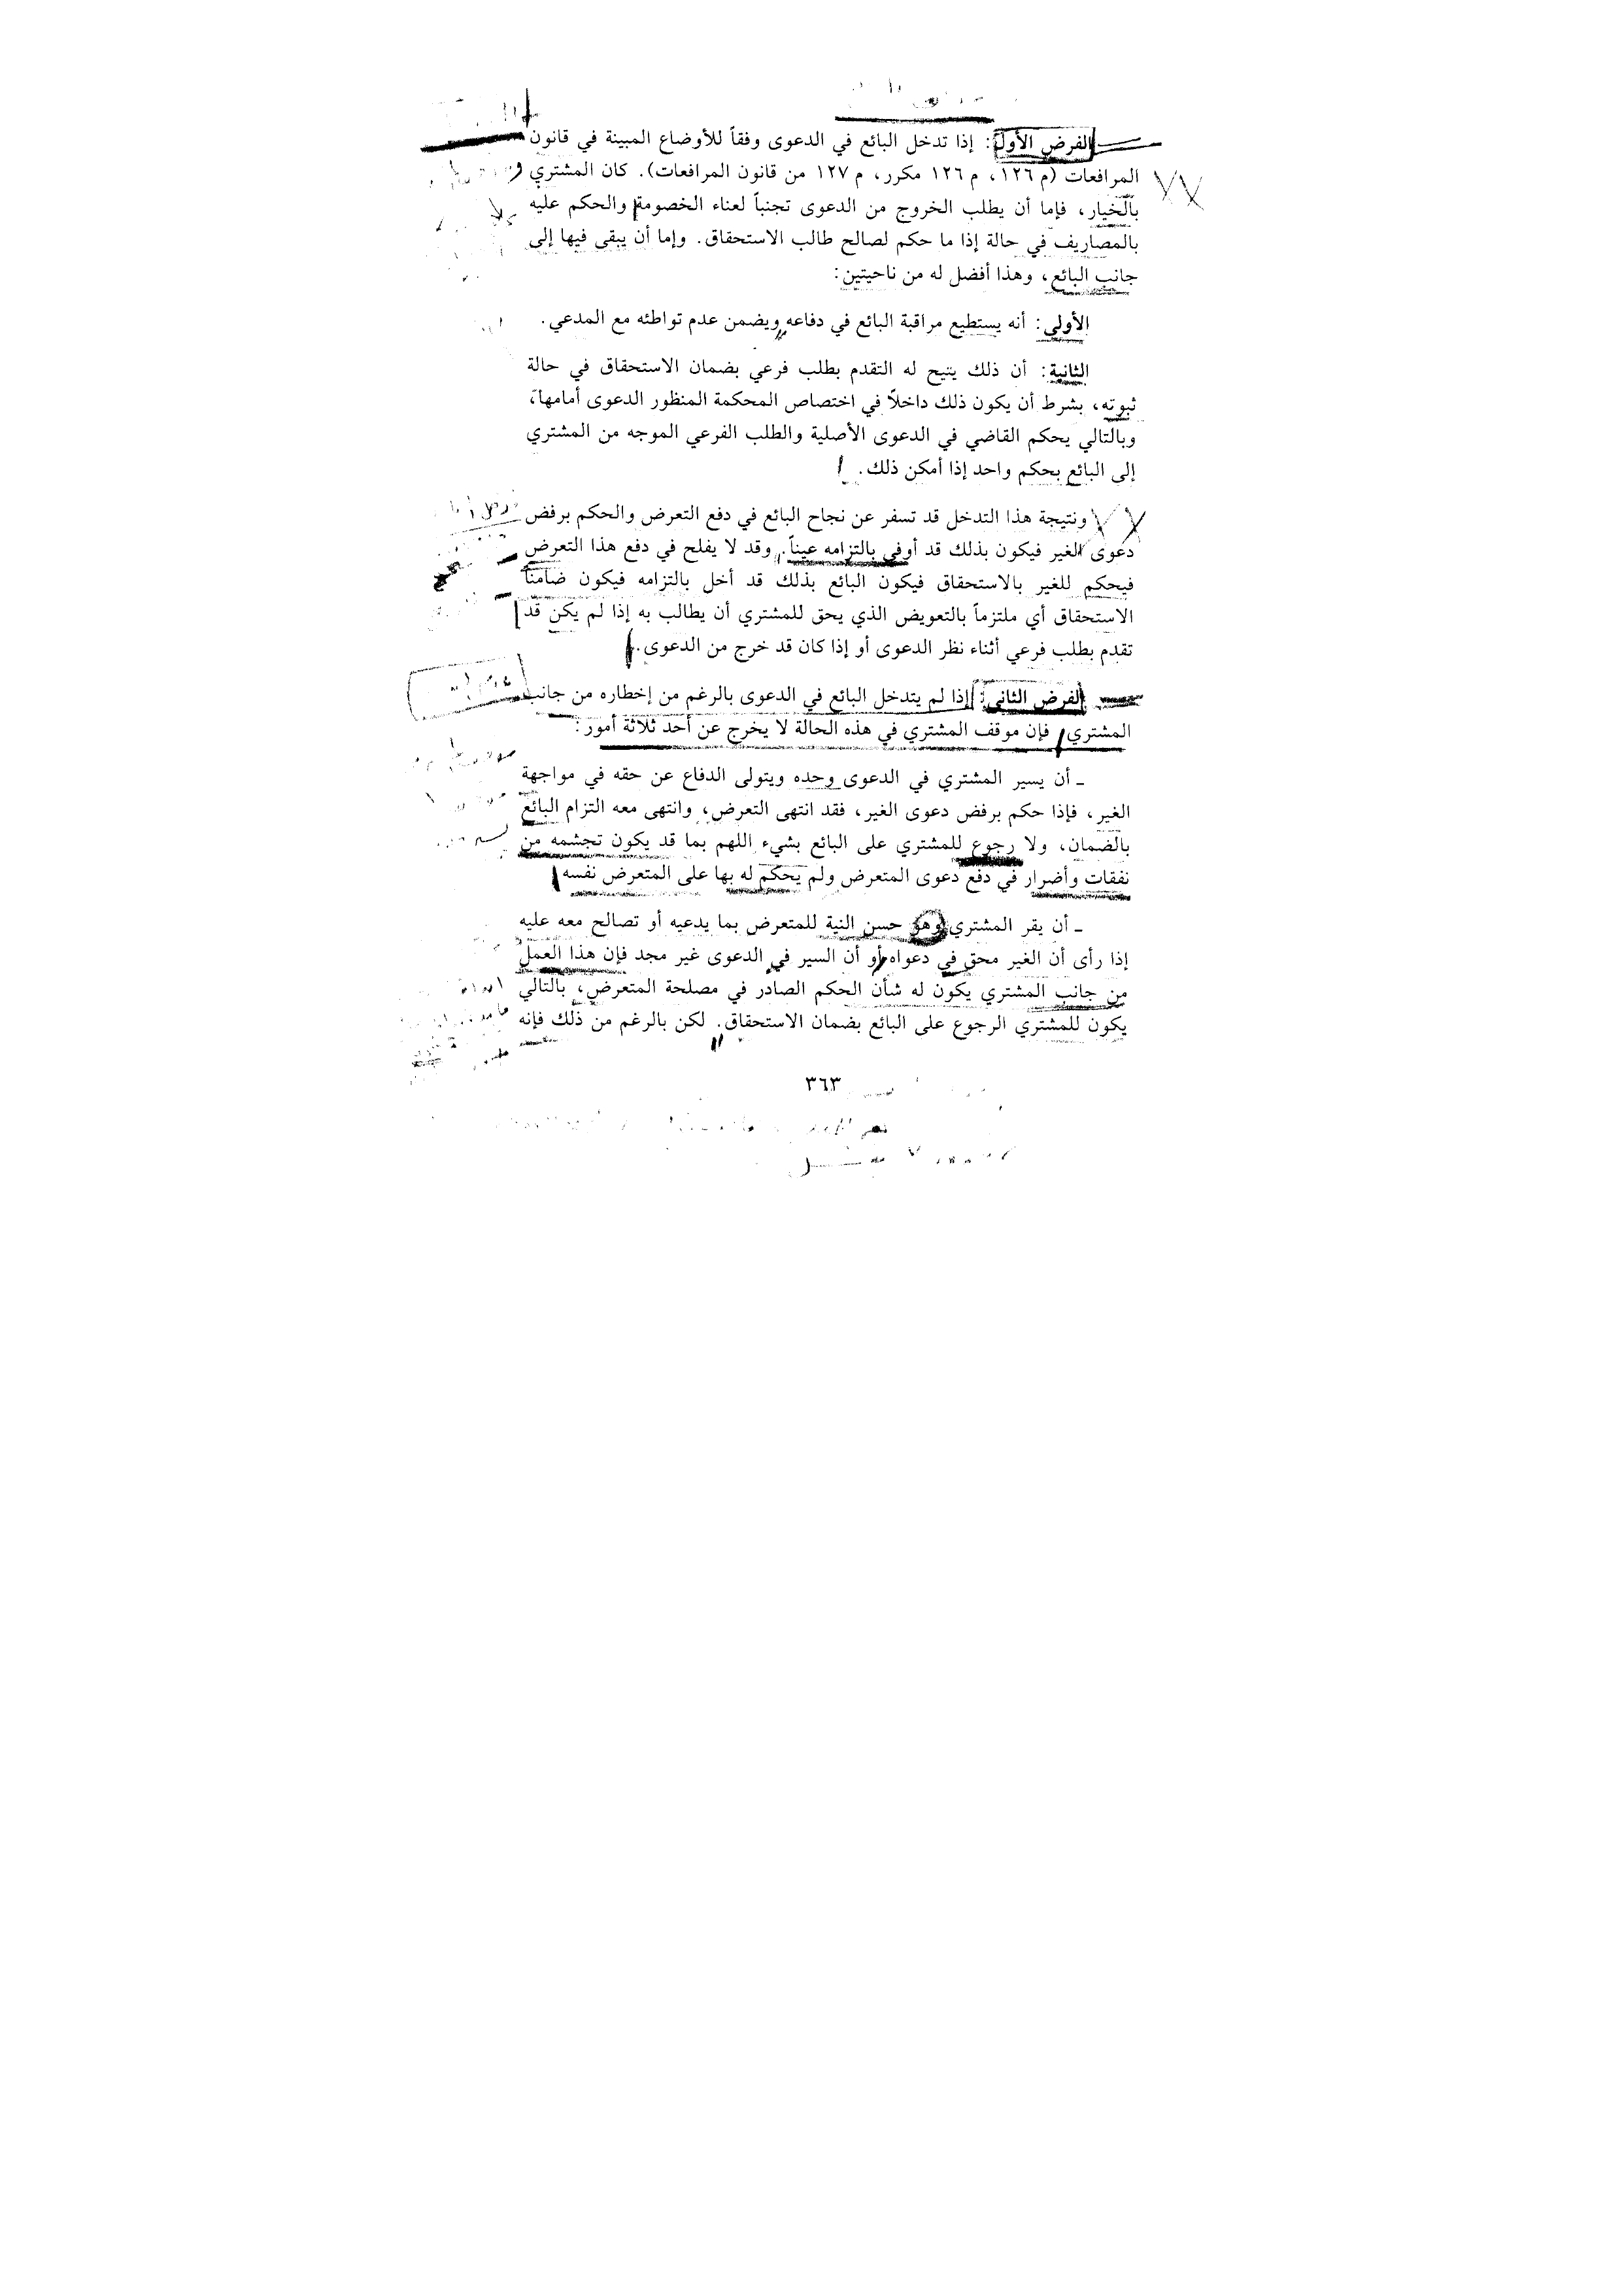 الفرض الأول: إذا تدخل البائع في الدعوى وفقاً للأوضاع المبينة في قانون
المرافعات (م ١٢٦، م ١٢٦ مكرر، م ١٢٧ من قانون المرافعات). كان المشتري
بالخيار، فإما أن يطلب الخروج من الدعوى تجنباً لعناء الخصومة والحكم عليه
بالمصاريف في حالة إذا ما حكم لصالح طالب الاستحقاق. وإما أن يبقى فيها إلى
جانب البائع، وهذا أفضل له من ناحيتين:
الأولى: أنه يستطيع مراقبة البائع في دفاعه ويضمن عدم تواطئه مع المدعي.
الثانية: أن ذلك يتيح له التقدم بطلب فرعي بضمان الاستحقاق في حالة
ثبوته، بشرط أن يكون ذلك داخلاً في اختصاص المحكمة المنظور الدعوى أمامها،
وبالتالي يحكم القاضي في الدعوى الأصلية والطلب الفرعي الموجه من المشتري
إلى البائع بحكم واحد إذا أمكن ذلك.
ونتيجة هذا التدخل قد تسفر عن نجاح البائع في دفع التعرض والحكم برفض
دعوى الغير فيكون بذلك قد أوفى بالتزامه عيناً. وقد لا يفلح في دفع هذا التعرض
فيحكم للغير بالاستحقاق فيكون البائع بذلك قد أخل بالتزامه فيكون ضامناً
الاستحقاق أي ملتزماً بالتعويض الذي يحق للمشتري أن يطالب به إذا لم يكن قد
تقدم بطلب فرعي أثناء نظر الدعوى أو إذا كان قد خرج من الدعوى.
الفرض الثاني: إذا لم يتدخل البائع في الدعوى بالرغم من إخطاره من جانب
المشتري فإن موقف المشتري في هذه الحالة لا يخرج عن أحد ثلاثة أمور:
ـ أن يسير المشتري في الدعوى وحده ويتولى الدفاع عن حقه في مواجهة
الغير، فإذا حكم برفض دعوى الغير، فقد انتهى التعرض، وانتهى معه التزام البائع
بالضمان، ولا رجوع للمشتري على البائع بشيء اللهم بما قد يكون تجشمه من
نفقات وأضرار في دفع دعوى المتعرض ولم يحكم له بها على المتعرض نفسه
ـ أن يقر المشتري وهو حسن النية للمتعرض بما يدعيه أو تصالح معه عليه
إذا رأى أن الغير محق في دعواه أو أن السير في الدعوى غير مجد فإن هذا العمل
من جانب المشتري يكون له شأن الحكم الصادر في مصلحة المتعرض، بالتالي
يكون للمشتري الرجوع على البائع بضمان الاستحقاق. لكن بالرغم من ذلك فإنه
٣٦٣